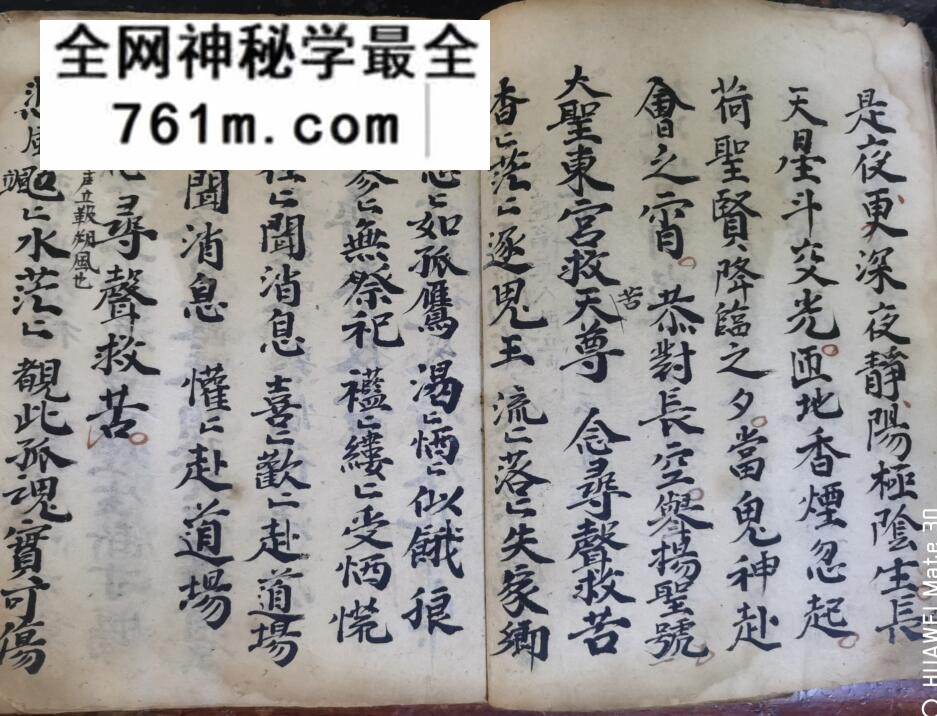 全网神秘学最全
761m.com
是夜更深夜静陽極陰生長
天星斗交光匝地香煙忽起
荷聖賢降臨之夕當鬼神赴
會之宵恭對長空舉揚聖號
大聖東宮救苦天尊 念尋聲救苦
香〻茫〻逐鬼王 流〻落〻失家鄉
如孤鴈 渴〻恓〻似餓狼
無祭祀 襤〻縷〻受恓慌
聞消息 喜〻歡〻赴道場
聞消息 懽〻赴道場
尋聲救苦
朔風也
水茫〻 觀此孤魂實可傷
HUAWEI Mate 30